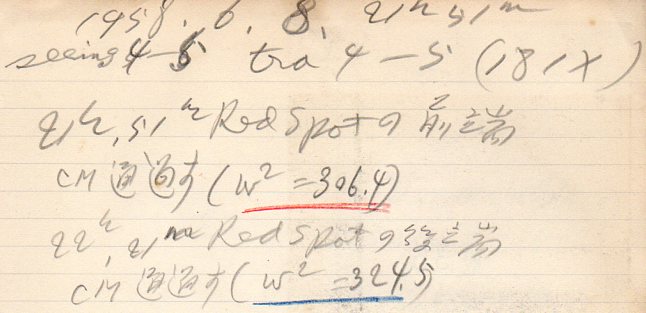 1958. 6. 8. 21h 51m
seeing 4-5 tra 4-5 (181X)
21h, 51m Red Spotの前端
CM通過す (W² = 306.4)
22h, 21m Red Spotの後端
CM通過す (W² = 324.5)